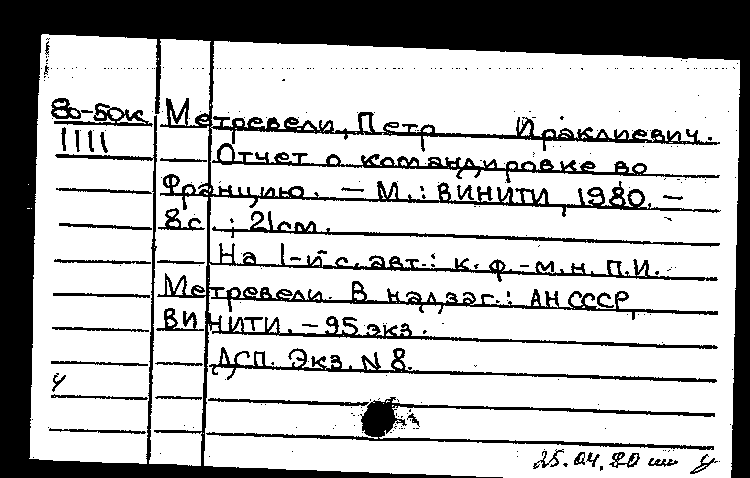 80-50к Метревели, Петр Ираклиевич.
1111 Отчет о командировке во
Францию. — М.: ВИНИТИ, 1980. —
8 с. ; 21 см.
На 1-й с. авт.: к. ф.-м. н. П.И.
Метревели. В надзаг.: АН СССР,
ВИНИТИ. — 95 экз.
ДСП. Экз. N 8.
25.04.80